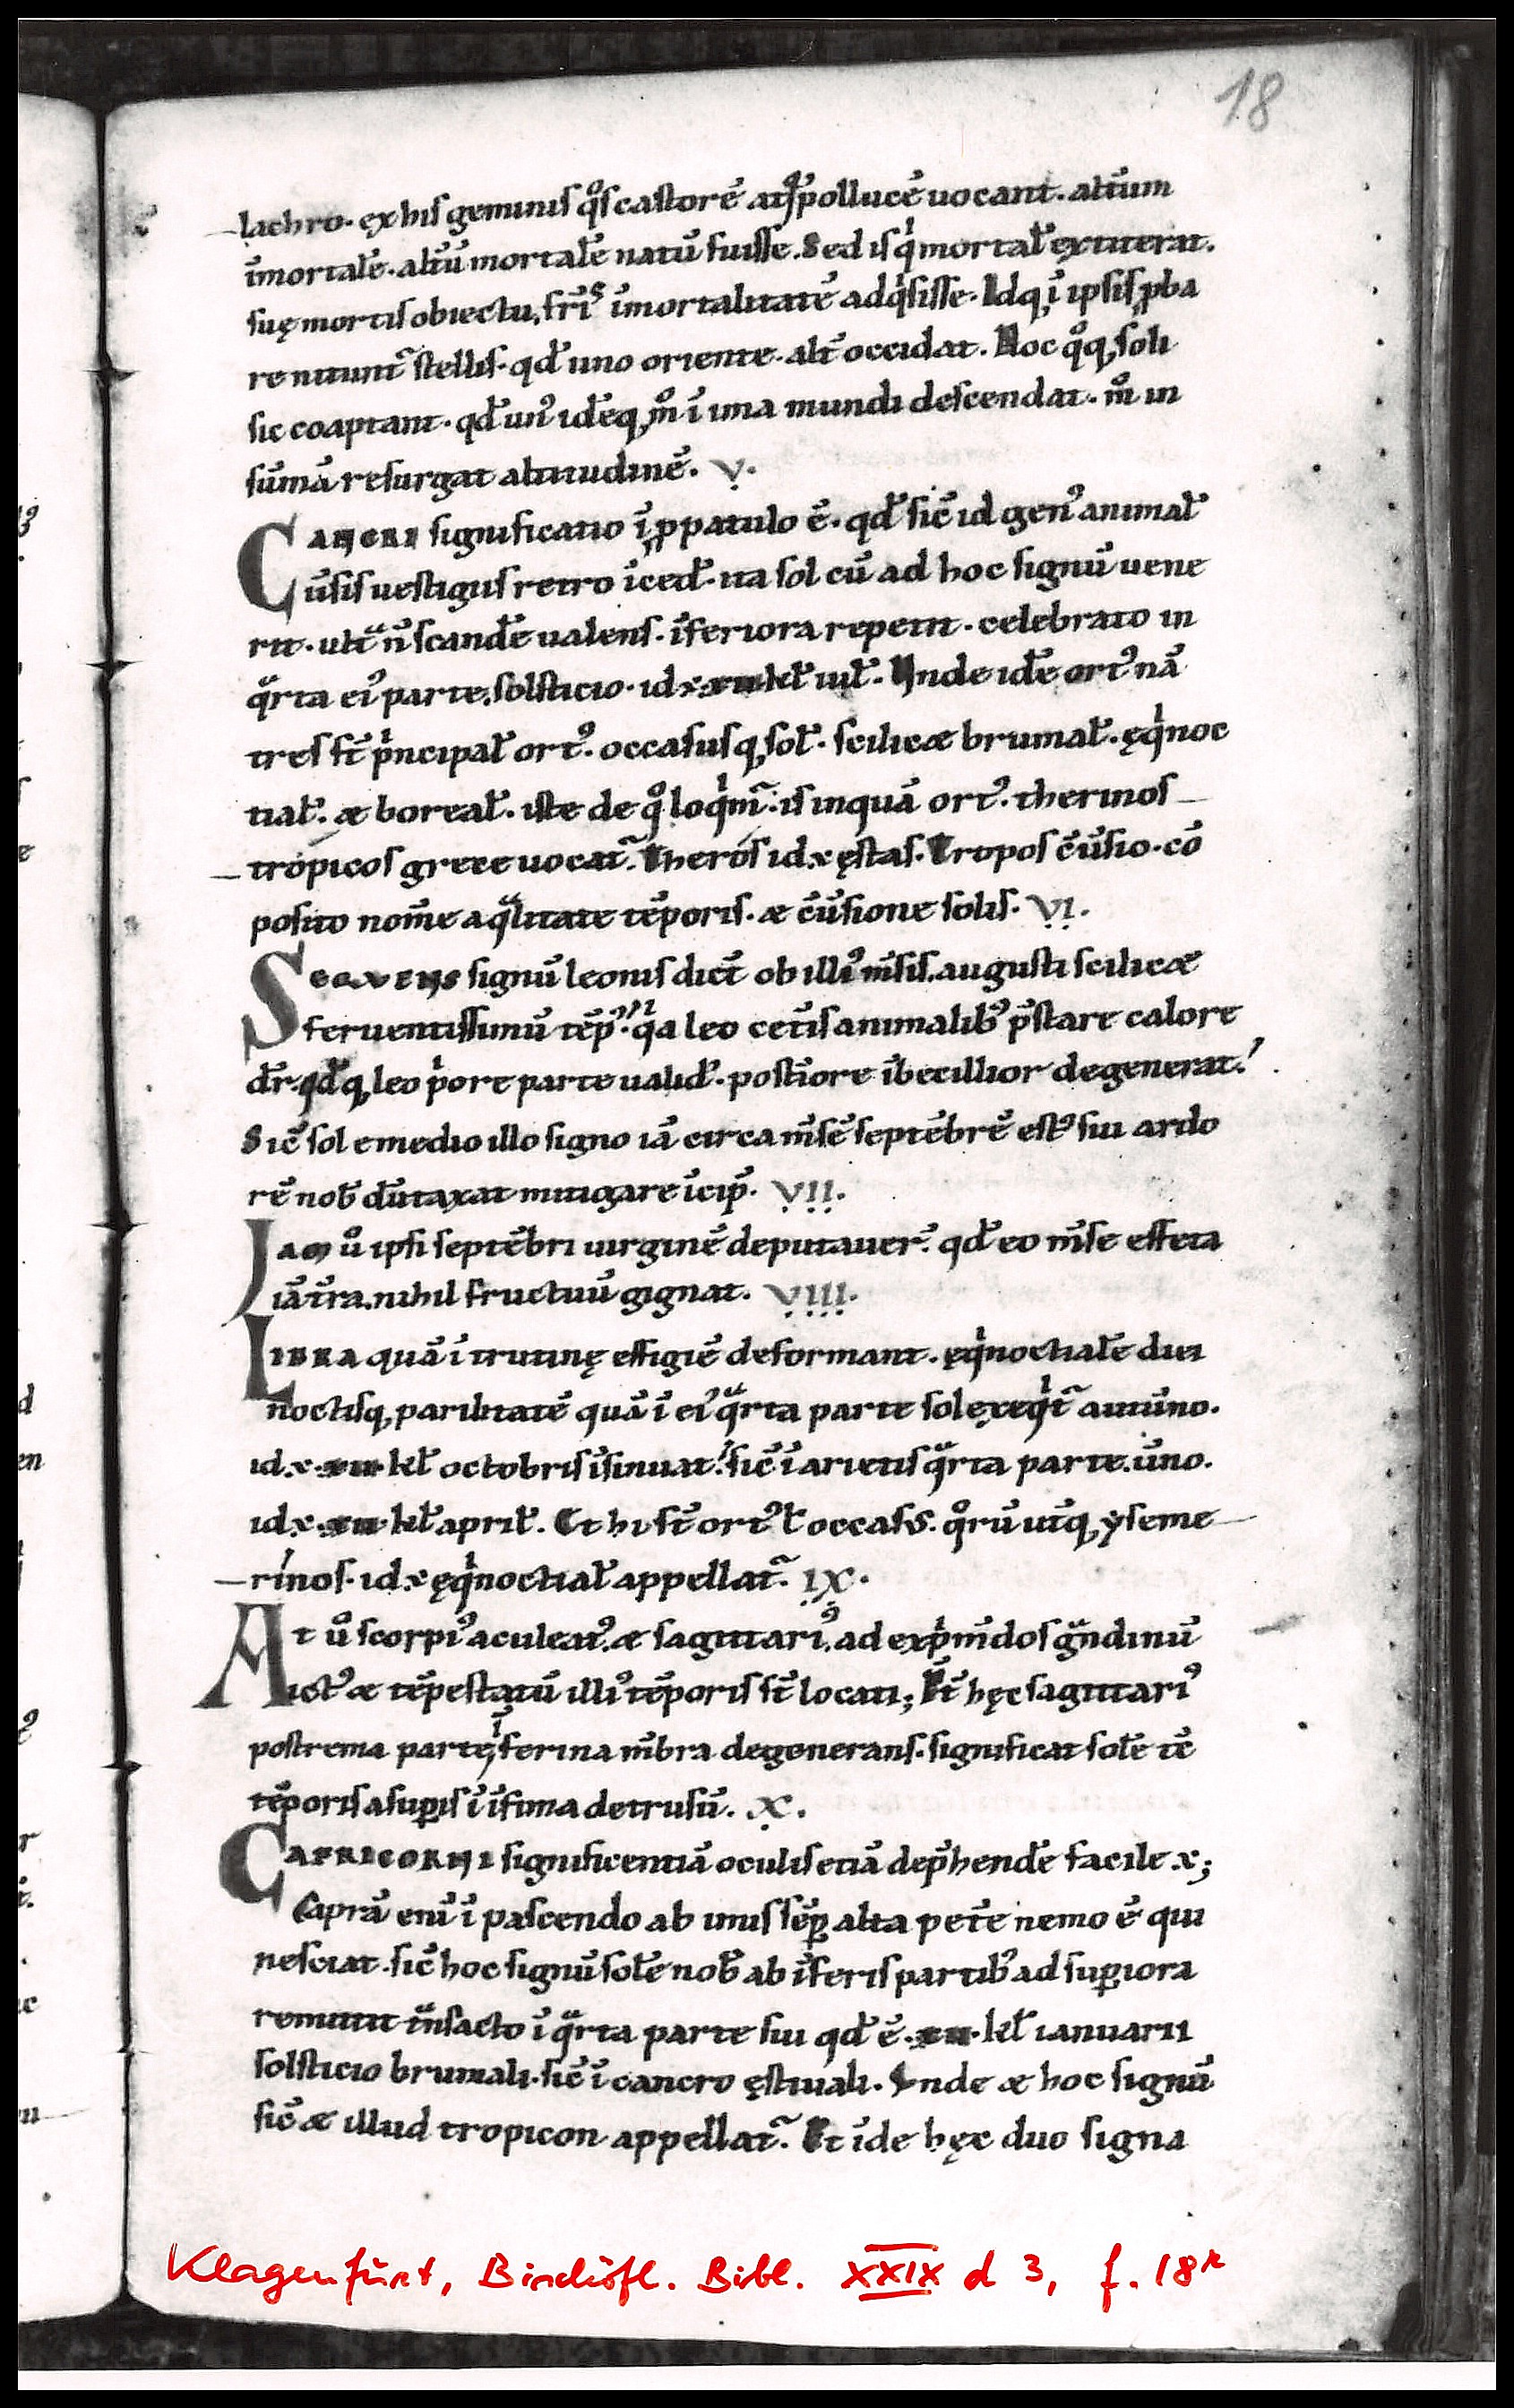 18
lachro. ęx his geminis qͦs castorē atq; pollucē uocant. alt̄um
īmortalē. alt̄ū mortalē natū fuisse. Sed is qͥ mortaľ ęxtiterat.
suę mortis obiectu, fr̄is īmortalitatē adqͥsisse. Idq; ī ipsis ꝓba
re nitunt᷑ stellis. qď uno oriente. alt̄ occidat. Hoc qͦq; soli
sic coaptant. qď un᾽ idēq; mͦ ī ima mundi descendat. mͦ in
sūmā resurgat altitudinē. V.
CANCRI significatio ī ꝓpatulo ē. qď sic̄ id gen᾽ animaľ
ūsis uestigiis retro īced̄. ita sol cū ad hoc signū uene
rit. ult̄ͣ n̄ scand̄e ualens. īferiora repetit. celebrato in
qͣrta ei᾽ parte, solsticio. id.ē.xii kľ iuľ. Unde idē ort᾽ nā
tres st̄ pͥncipaľ ort᾽. occasusq; soľ. scilicæ brumaľ. ęqͥnoc
tiaľ. æ boreaľ. iste de qͦ loqͥm᷑. is inquā ort᾽. therinos
tropicos grece uocat᷑. Theros id.ē ęstas. Tropos c̄ūsio. cō
posito nom̄e a qͣlitate tēporis. æ c̄ūsione solis. VI.
SEQVENS signū leonis dict̄ ob illi᾽ m̄sis. augusti scilicæ
feruentissimū tēp᾽. qͥa leo cet̄is animalib᾽ p̄stare calore
dr̄. qďq; leo pͥore parte ualid᾽. post̄iore ībecillior degenerat.
Sic̄ sol e medio illo signo iā circa m̄sē septēbrē est᾽ sui ardo
rē nob̄ dūtaxat mitigare īcip̄. VII.
IAM uͦ ipsi septēbri uirginē deputauer̄. qď eo m̄se effeta
iā t̄ra. nihil fructuū gignat. VIII.
LIBRA quā ī trutinę effigiē deformant. ęqͥnoctialē diei
noctisq; parilitatē quā ī ei᾽ qͣrta parte sol ęxeqͥt᷑ autūno.
id.ē.xii kľ octobris īsinuat. sic̄ ī arietis qͣrta parte. ūno.
id.ē.xii kľ apriľ. Et hi st̄ ort᾽ ľ occasvs. qͦrū ut̄q; yseme
rinos. id.ē ęqͥnoctiaľ appellat᷑. IX.
At uͦ scorpi᾽ aculeat᾽. æ sagittari᾽. ad exp̄ͥmdos gͣndinū
ict᾽ æ tēpestatū illi᾽ tēporis st̄ locati; Et̄ hęc sagittari᾽
postrema parte ī ferina m̄bra degenerans. significat solē tc̄
tēporis a suꝑis ī īfima detrusū. X.
CAPRICORNI significentiā oculis etiā dep̄hend̄e facile.ē;
Caprā eni ī pascendo ab imis sēꝑ alta pet̄e nemo ē qui
nesciat. sic̄ hoc signū solē nob̄ ab īferis partib᾽ ad suꝑiora
remittit tͣnsacto ī qͣrta parte sui qď ē.xii. kľ ianuarii
solsticio brumali. sic̄ ī cancro ęstiuali. Vnde æ hoc signū
sic̄ æ illud tropicon appellat᷑. Et īde hęc duo signa
Klagenfurt, Bischöfl. Bibl. XXIX d 3, f. 18r